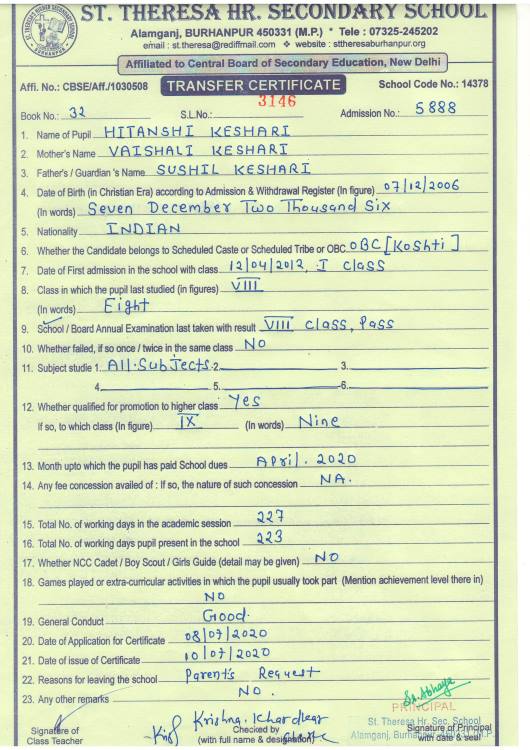 ST. THERESA HR. SECONDARY SCHOOL
Alamganj, BURHANPUR 450331 (M.P.) * Tele : 07325-245202
email : st.theresa@rediffmail.com ❖ website : sttheresaburhanpur.org
Affiliated to Central Board of Secondary Education, New Delhi
Affi. No.: CBSE/Aff./1030508 TRANSFER CERTIFICATE School Code No.: 14378
3146
Book No.: 32 S.L.No.: Admission No.: 5888
1. Name of Pupil HITANSHI KESHARI
2. Mother's Name VAISHALI KESHARI
3. Father's / Guardian 's Name SUSHIL KESHARI
4. Date of Birth (in Christian Era) according to Admission & Withdrawal Register (In figure) 07/12/2006
(In words) Seven December Two Thousand Six
5. Nationality INDIAN
6. Whether the Candidate belongs to Scheduled Caste or Scheduled Tribe or OBC OBC [Koshti]
7. Date of First admission in the school with class 12/04/2012, I class
8. Class in which the pupil last studied (in figures) VIII
(In words) Eight
9. School / Board Annual Examination last taken with result VIII class, Pass
10. Whether failed, if so once / twice in the same class NO
11. Subject studie 1. All Subjects 2. 3.
4. 5. 6.
12. Whether qualified for promotion to higher class Yes
If so, to which class (In figure) IX (In words) Nine
13. Month upto which the pupil has paid School dues April. 2020
14. Any fee concession availed of : If so, the nature of such concession NA.
15. Total No. of working days in the academic session 227
16. Total No. of working days pupil present in the school 223
17. Whether NCC Cadet / Boy Scout / Girls Guide (detail may be given) NO
18. Games played or extra-curricular activities in which the pupil usually took part (Mention achievement level there in)
NO
19. General Conduct Good.
20. Date of Application for Certificate 08/07/2020
21. Date of issue of Certificate 10/07/2020
22. Reasons for leaving the school Parent's Request
23. Any other remarks NO.
Sr. Abhaya
PRINCIPAL
Krishna. Khardkar
St. Theresa Hr. Sec. School
Signature of Checked by Signature of Principal
Class Teacher (with full name & designation) Alamganj, Burhanpur with date & seal